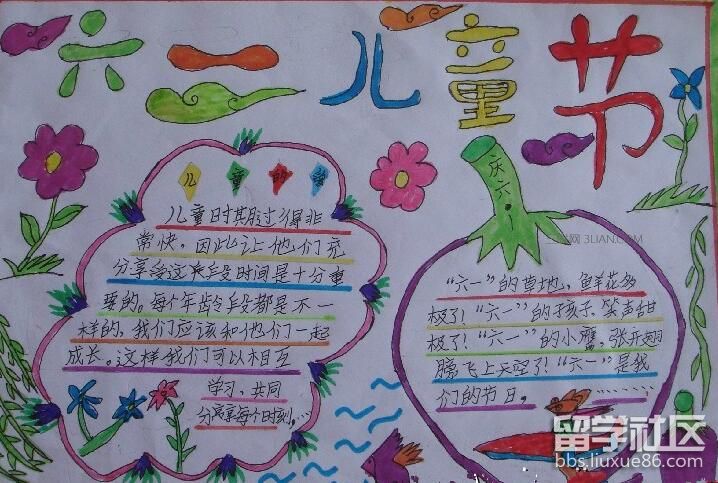 六一儿童节
儿童的
儿童时期过得非
常快，因此让他们充
分享受这一段时间是十分重
要的。每个年龄段都是不一
样的，我们应该和他们一起
成长。这样我们可以相互
学习，共同
分享每个时刻。…
庆六一
3LIAN.COM
“六一”的草地，鲜花多
极了！“六一”的孩子，笑声甜
极了！“六一”的小鹰，张开翅
膀飞上天空了！“六一”是我
们的节日。
留学社区
bbs.liuxue86.com